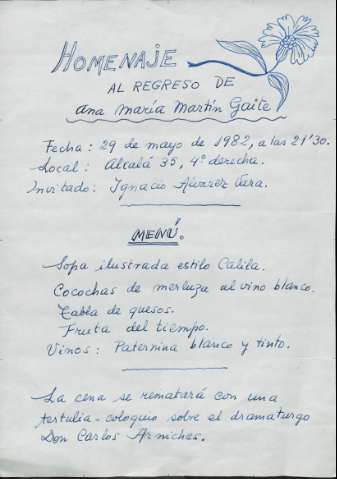 HOMENAJE
AL REGRESO DE
Ana María Martín Gaite
Fecha: 29 de mayo de 1982, a las 21'30.
Local: Alcalá 35, 4º derecha.
Invitado: Ignacio Álvarez Vara.
MENÚ.
Sopa ilustrada estilo Calila.
Cocochas de merluza al vino blanco.
Tabla de quesos.
Fruta del tiempo.
Vinos: Paternina blanco y tinto.
La cena se rematará con una
tertulia-coloquio sobre el dramaturgo
Don Carlos Arniches.